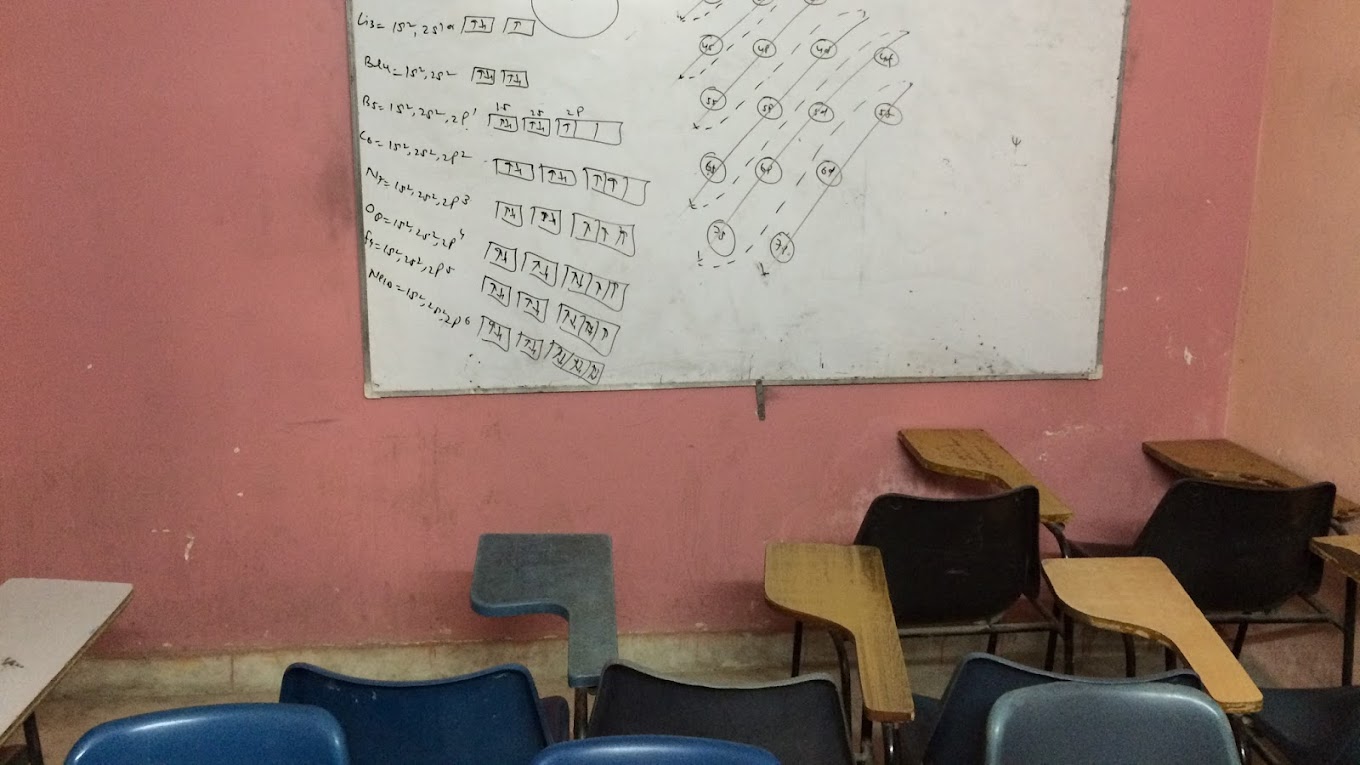 Li3 = 1s², 2s¹
Be4 = 1s², 2s²
1s 2s 2p
B5 = 1s², 2s², 2p¹
C6 = 1s², 2s², 2p²
N7 = 1s², 2s², 2p³
O8 = 1s², 2s², 2p⁴
F9 = 1s², 2s², 2p⁵
Ne10 = 1s², 2s², 2p⁶
4s 4p 4d 4f
5s 5p 5d 5f
6s 6p 6d
7s 7p
ψ